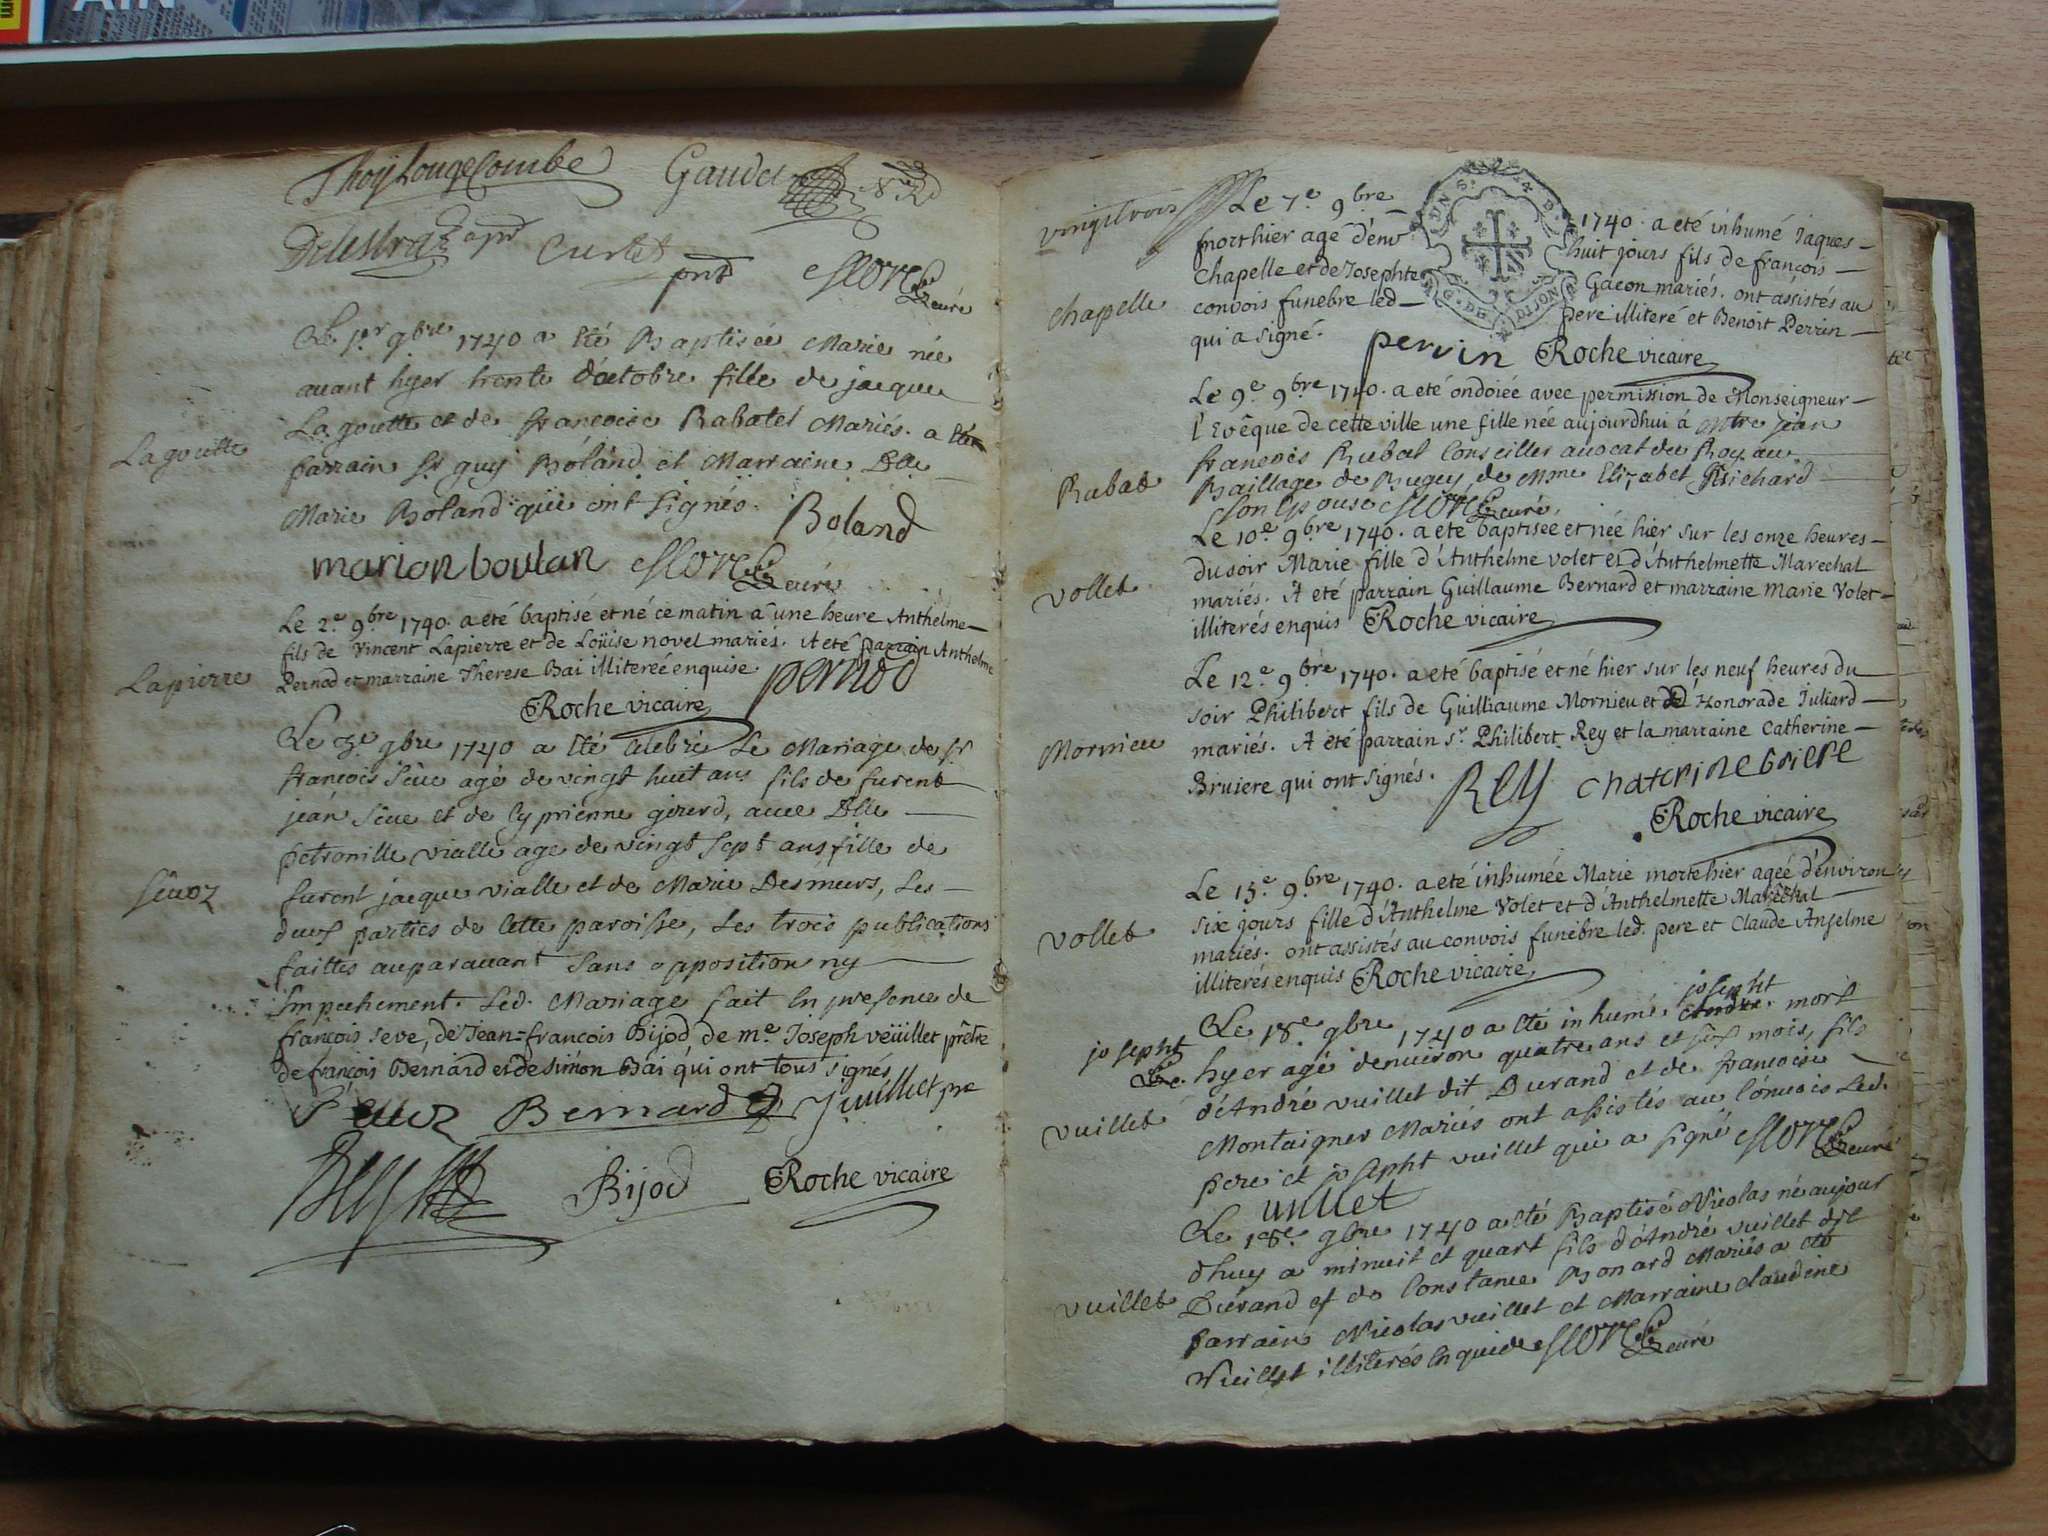 AIN
Thoy Longecombe Gaudet
Delestraz
Curlet
curé
Le 1er 9bre 1740 a été Baptisée Marie née
avant hyer trente d'octobre fille de jacque
La gouette et de francoise Rabatel Mariés. a été
Lagouette
parrain Sr guy Boland et Marraine Dlle
Marie Boland qui ont signés. Boland
marion boulan curé
Le 2e 9bre 1740. a eté baptisé et né ce matin à une heure Anthelme
fils de Vincent Lapierre et de Loüise novel mariés. A eté parrain Anthelme
Lapierre
Pernod et marraine Therese Bai illitereé enquise. pernod
Roche vicaire
Le 3e 9bre 1740 a été Celebré Le Mariage de Sr
francois Sêve agé de vingt huit ans fils de furent
jean Sêve et de Cyprienne girerd, avec Dlle
petronille vialle age de vingt sept ans fille de
Sêvoz
furent jacque vialle et de Marie Desmeurs, Les
deux parties de Cette paroisse, Les trois publications
faittes auparavant Sans opposition ny
Empechement. Led. Mariage fait En presence de
françois seve, de Jean=francois Bijod de me. Joseph veüillet prêtre
de françois Bernard et de simon Bai qui ont tous signés
Bernard J vuillet pre
Bijod Roche vicaire
vingttrois
Le 7e 9bre 1740. a eté inhumé Jaques
mort hier agé d'env huit jours fils de françois
Chapelle et de Josephte Gacon mariés. ont assistés au
chapelle
convois funebre led pere illiteré et Benoit Perrin
qui a signé. pervin Roche vicaire
DIJON
Le 9e 9bre 1740. a eté ondoiée avec permission de Monseigneur
l'Evêque de cette ville une fille née aujourdhui à Mtre jean
francois Rubat Conseiller avocat du Roy au
Rubat
Baillage de Bugey de Mme Elizabet Richard
son Epouse curé
Le 10e 9bre 1740. a eté baptisée et née hier sur les onze heures
du soir Marie fille d'Anthelme Volet et d'Anthelmette Marechal
vollet
mariés. A eté parrain Guillaume Bernard et marraine Marie Volet
illiterés enquis Roche vicaire
Le 12e 9bre 1740. a eté baptisé et né hier sur les neuf heures du
soir Philibert fils de Guilliaume Mornieu et de Honorade Juliard
Mornieu
mariés. A été parrain sr. Philibert Rey et la marraine Catherine
Bruiere qui ont signés. Rey chaterine briere
Roche vicaire
Le 15e 9bre 1740. a eté inhumée Marie morte hier agée d'environ
six jours fille d'Anthelme Volet et d'Anthelmette Maréchal
vollet
mariés. ont assistés au convois funebre led. pere et Claude Anselme
illiterés enquis Roche vicaire
josepht
Le 18e 9bre 1740 a été inhumé. mort
josepht
hyer agé denviron quatre ans et six mois, fils
d'André vuillet dit Durand et de francoise
vuillet
Montaigner Mariés ont assistés au Convois Led.
pere et josepht vuillet qui a signé curé
vuillet
Le 18e 9bre 1740 a été Baptisé Nicolas né aujour
dhuy a minuit et quart fils d'André vuillet dit
Durand et de Constance Bonard Mariés a été
vuillet
parrain Nicolas vuillet et Marraine claudine
Vuillet illiterés Enquide curé